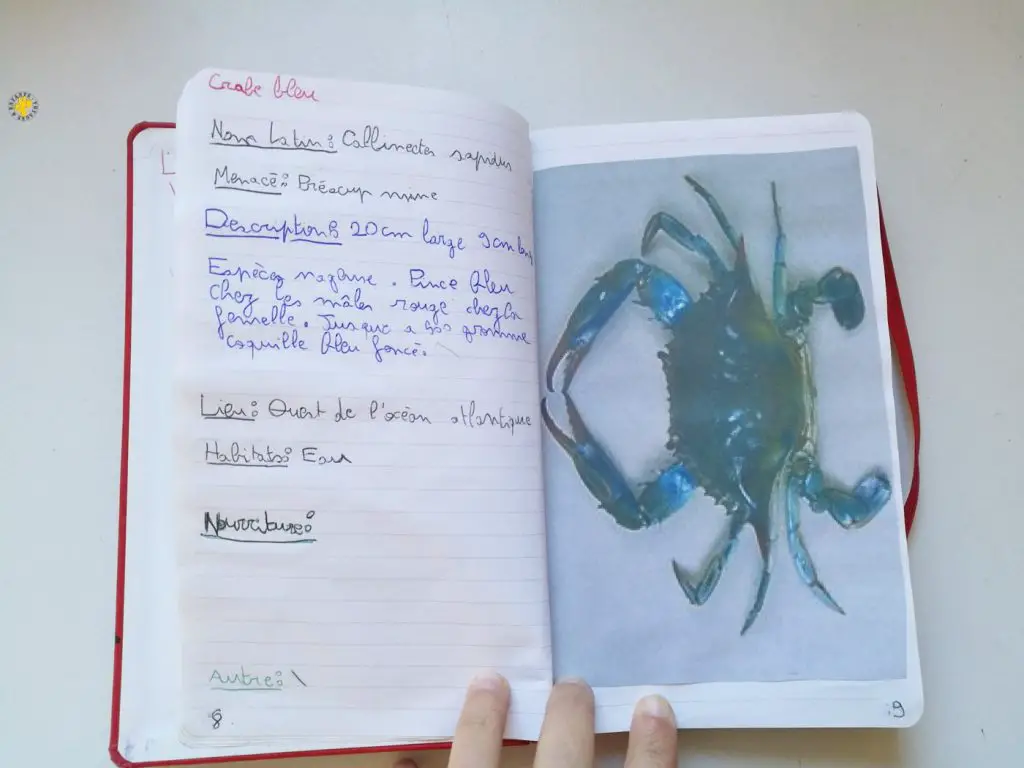 Crabe bleu
Nom Latin : Callinectes sapidus
Menacé : Préocup mine
Description : 20 cm large 9 cm
Espèces nageuse. Pince bleu
chez les mâles rouge chez la
femelle. Jusque a 500 gramme
coquille bleu foncé.
Lieu : Ouest de l'océan atlantique
Habitats : Eau
Nourriture :
Autre : \
8
9